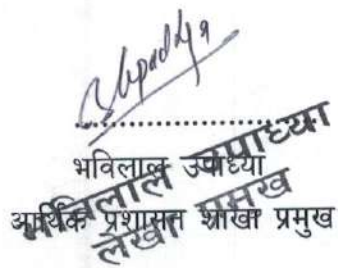 भविलाल उपाध्या
आर्थिक प्रशासन शाखा प्रमुख
भविलाल उपाध्या
लेखा प्रमुख